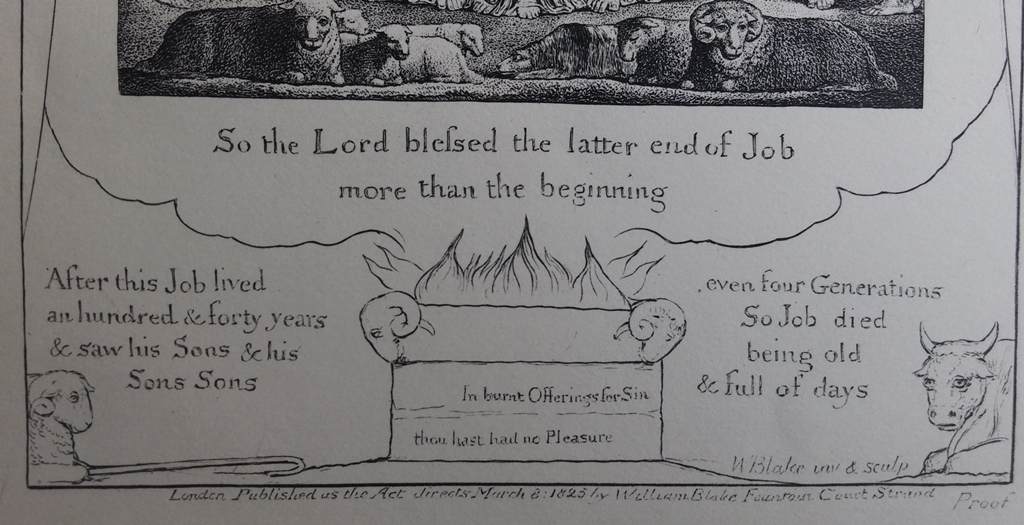 So the Lord bleſsed the latter end of Job
more than the beginning
After this Job lived
an hundred & forty years
& saw his Sons & his
Sons Sons
,even four Generations
So Job died
being old
& full of days
In burnt Offerings for Sin
thou hast had no Pleasure
WBlake inv & sculp
London Published as the Act directs March 8: 1825 by William Blake Fountain Court Strand
Proof